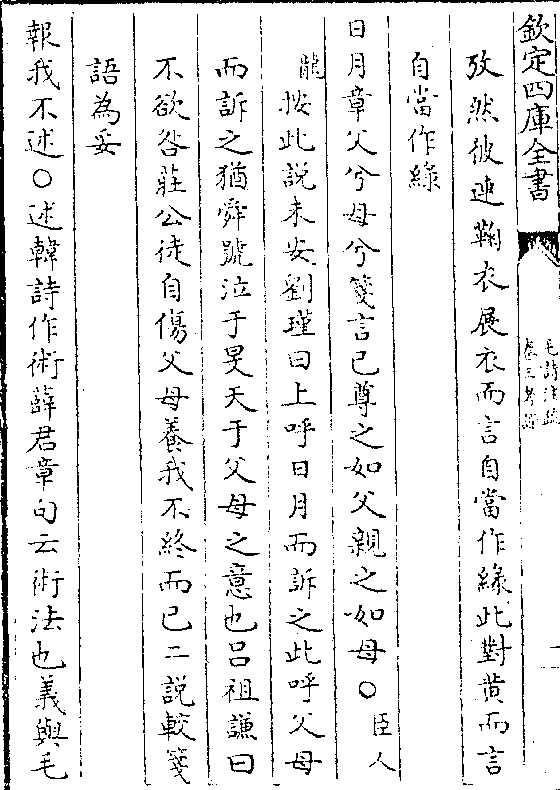 欽定四庫全書
毛詩注疏
卷三考證
攷然彼連鞠衣展衣而言自當作緣此對黄而言
自當作綠
日月章父兮母兮箋言己尊之如父親之如母○臣人
龍按此説未安劉瑾曰上呼日月而訴之此呼父母
而訴之猶舜號泣于旻天于父母之意也吕祖謙曰
不欲咎莊公徒自傷父母養我不終而已二説較箋
語為妥
報我不述○述韓詩作術薛君章句云術法也義與毛